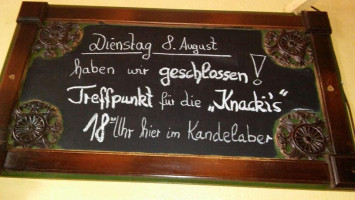 Dienstag 8. August
haben wir geschlossen!
Treffpunkt für die „Knacki's"
18⁰⁰ Uhr hier im Kandelaber